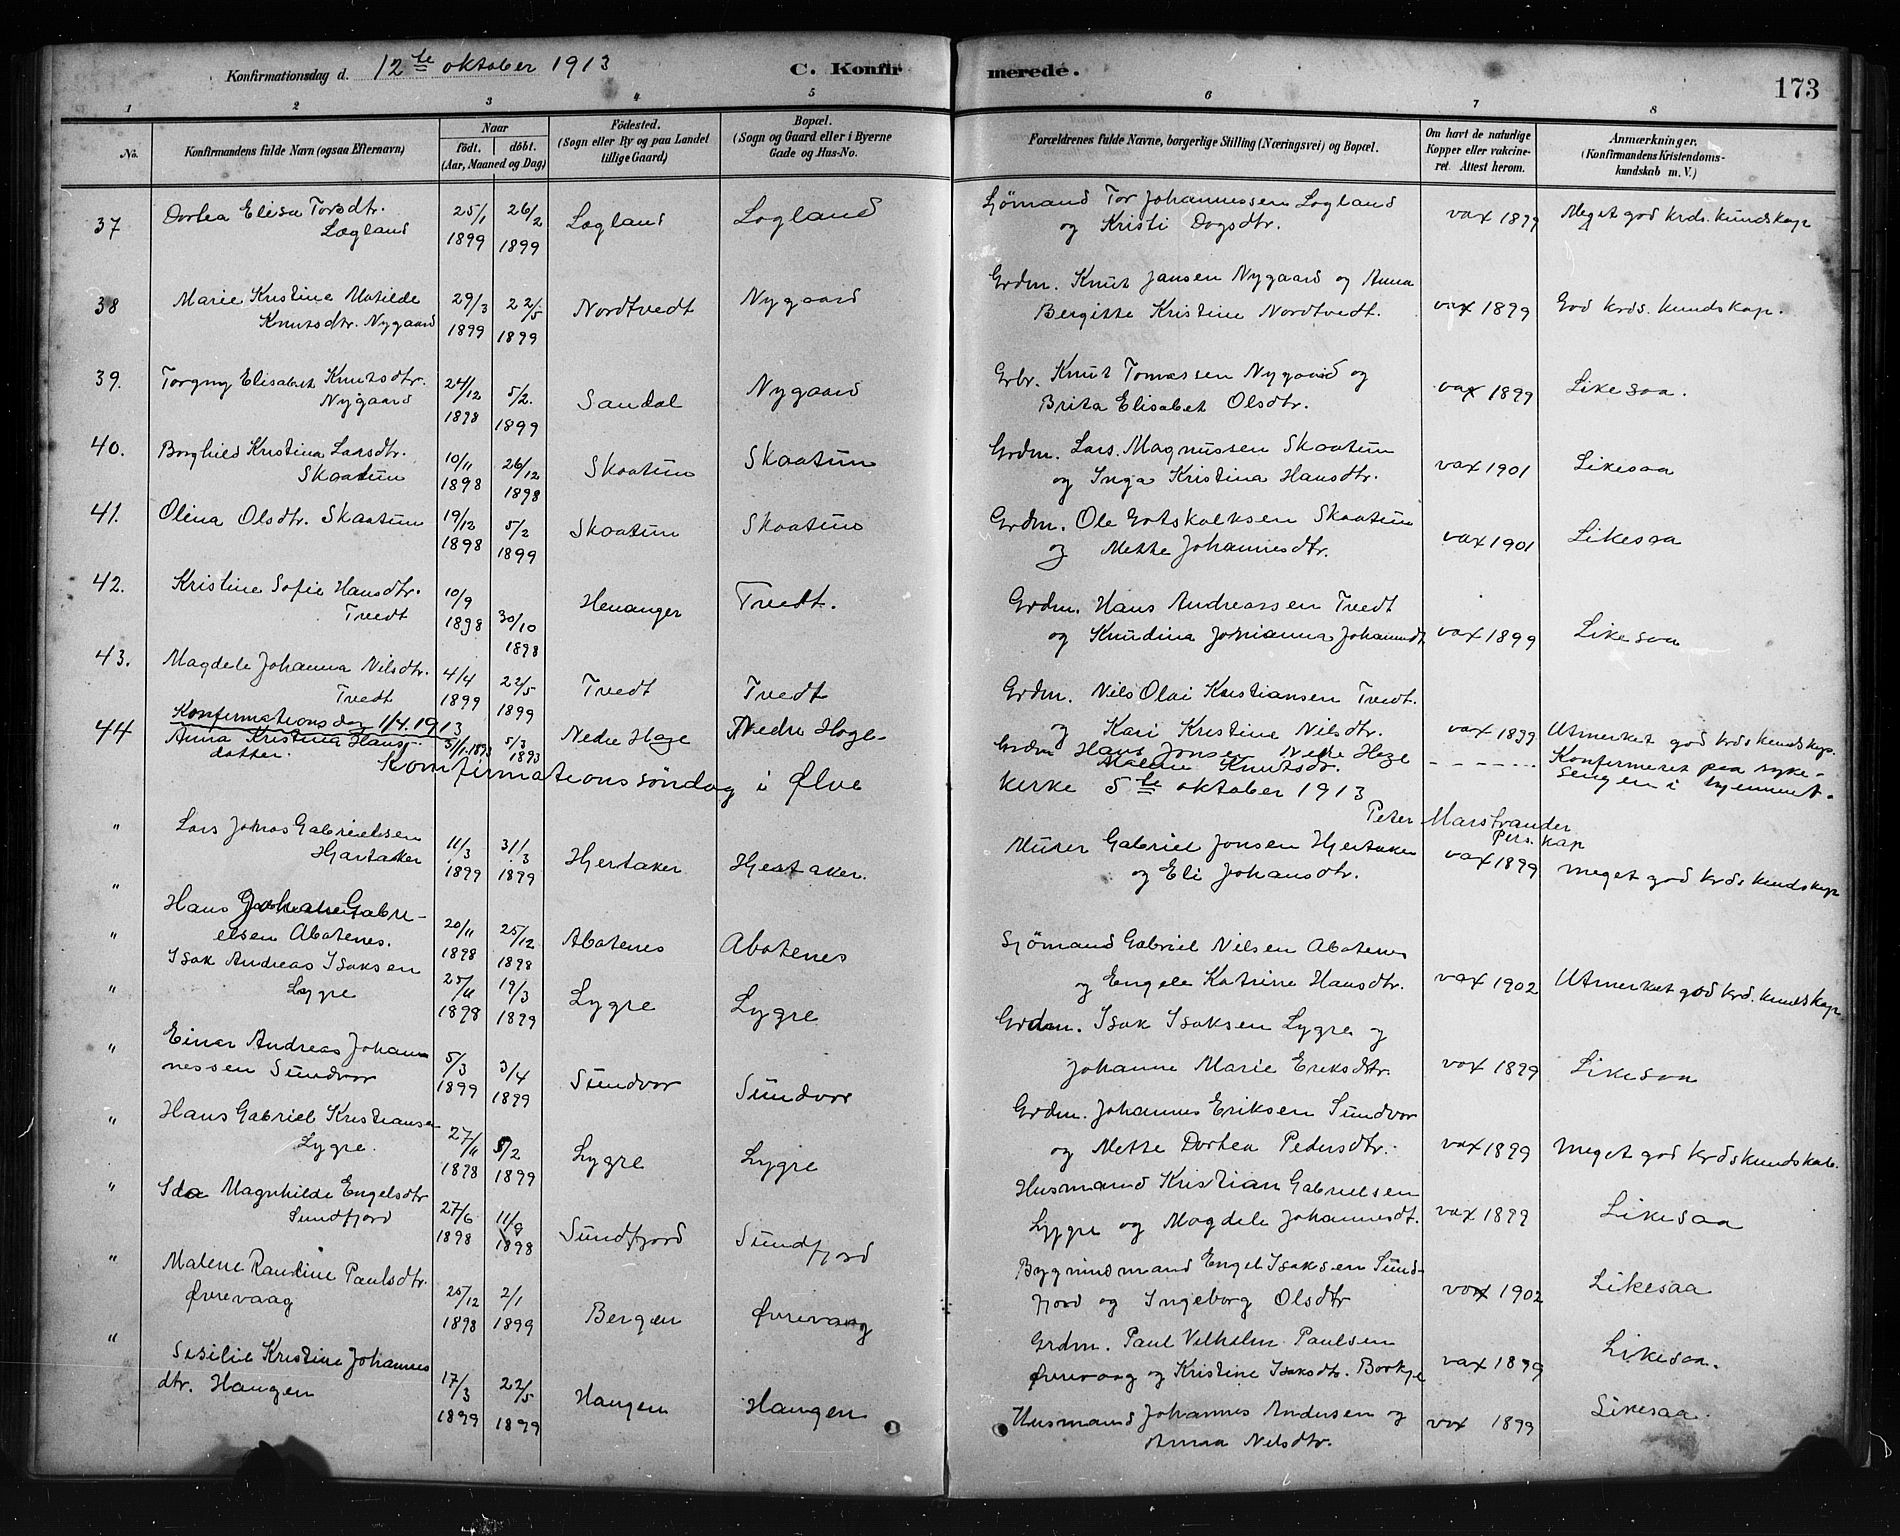 Konfirmationsdag d. 12te oktober 1913 C. Konfirmerede. 173
1 2 3 4 5 6 7 8
No. Konfirmandens fulde Navn (ogsaa Efternavn) Naar født. døbt. (Aar, Maaned og Dag) Fødested. (Sogn eller By og paa Landet tillige Gaard) Bopæl. (Sogn og Gaard eller i Byerne Gade og Hus-No. Forældrenes fulde Navne, borgerlige Stilling (Næringsvei) og Bopæl. Om havt de naturlige Kopper eller vakcineret. Attest herom. Anmærkninger. (Konfirmandens Kristendomskundskab m. V.)
37 Dortea Elisa Torsdtr. Løgland 25/1 1899 26/2 1899 Løgland Løgland Sjømand Tor Johannessen Løgland
og Kristi Dagsdtr. vax 1899 Meget god krds. kundskap
38 Marie Kristine Matilde
Knutsdtr. Nygaard 29/3 1899 22/5 1899 Nordtvedt Nygaard Grdm. Knut Jansen Nygaard og Anna
Bergitte Kristine Nordtvedt. vax 1899 God krds. kundskap.
39. Torgny Elisabet Knutsdtr.
Nygaard 24/12 1898 5/2. 1899 Sandal Nygaard Gbr. Knut Tomassen Nygaard og
Brita Elisabet Olsdtr. vax 1899 Likesaa.
40. Borghild Kristina Larsdtr.
Skaatun 10/11 1898 26/12 1898 Skaatun Skaatun Grdm. Lars Magnussen Skaatun
og Inga Kristina Hansdtr. vax 1901 Likesaa
41. Olina Olsdtr. Skaatun 19/12 1898 5/2 1899 Skaatun Skaatun Grdm. Ole Gotskalksen Skaatun
og Mette Johannesdtr. vax 1901 Likesaa
42. Kristine Sofie Hansdtr.
Tvedt 10/9 1898 30/10 1898 Henanger Tvedt. Grdm. Hans Andreassen Tvedt
og Knudina Johanna Johannesdt vax 1899 Likesaa
43. Magdele Johanna Nilsdtr.
Tvedt 4/4 1899 22/5 1899 Tvedt Tvedt Grdm. Nils Olai Kristiansen Tvedt.
og Kari Kristine Nilsdtr. vax 1899 Utmerket god krdskundskap.
Konfirmationsdag 1/4 1913
44 Anna Kristina Hansdatter. 5/3 1893 Nedre Hage Nedre Hage Grdm Hans Jonsen Nedre Hage
Malene Knutsdr. Konfirmeret paa sykesengen i hjemmet.
Konfirmationssøndag i Ølve kirke 5te oktober 1913
Peter Marstrander
Pers. kap
" Lars Johas Gabrielsen
Hjartaker 11/3 1899 31/3 1899 Hjertaker Hjertaker. Murer Gabriel Jonsen Hjertaker
og Eli Johansdtr. vax 1899 meget god krds kundskap
" Hans Gabrielsen Abotenes. 20/11 1898 25/12 1898 Abotenes Abotenes Sjømand Gabriel Nilsen Abotenes
og Engele Katrine Hansdtr. vax 1902 Utmerket god krd. kundskap
" Isak Andreas Isaksen
Lygre 1898 19/3 1899 Lygre Lygre Grdm. Isak Isaksen Lygre og
Johanne Marie Eriksdtr. vax 1899 Likesaa
" Einar Andreas Johannessen Sundvor 5/3 1899 3/4 1899 Sundvor Sundvor Grdm. Johannes Eriksen Sundvor
og Mette Dortea Pedersdtr. vax 1899 meget god krdskundskab.
" Hans Gabriel Kristiansen
Lygre. 27/11 1898 5/2 1899 Lygre Lygre Husmand Kristian Gabrielsen
Lygre og Magdele Johannesdt. vax 1899 Likesaa
" Ida Magnhilde Engelsdtr
Sundfjord 27/6 1898 11/9 1898 Sundfjord Sundfjord Bygningsmand Engel Isaksen Sundfjord og Ingeborg Olsdtr vax 1902 Likesaa
" Malene Randine Paulsdtr.
Øvrevaag 25/12 1898 2/1 1899 Bergen Øvrevaag Grdm. Paul Vilhelm Paulsen
Øvrevaag og Kristine Isaksdtr. vax 1899 Likesaa.
" Sesilie Kristine Johannesdtr. Haugen 17/3 1899 22/5 1899 Haugen Haugen Husmand Johannes Andersen og
Anna Nilsdtr. vax 1899 Likesaa.